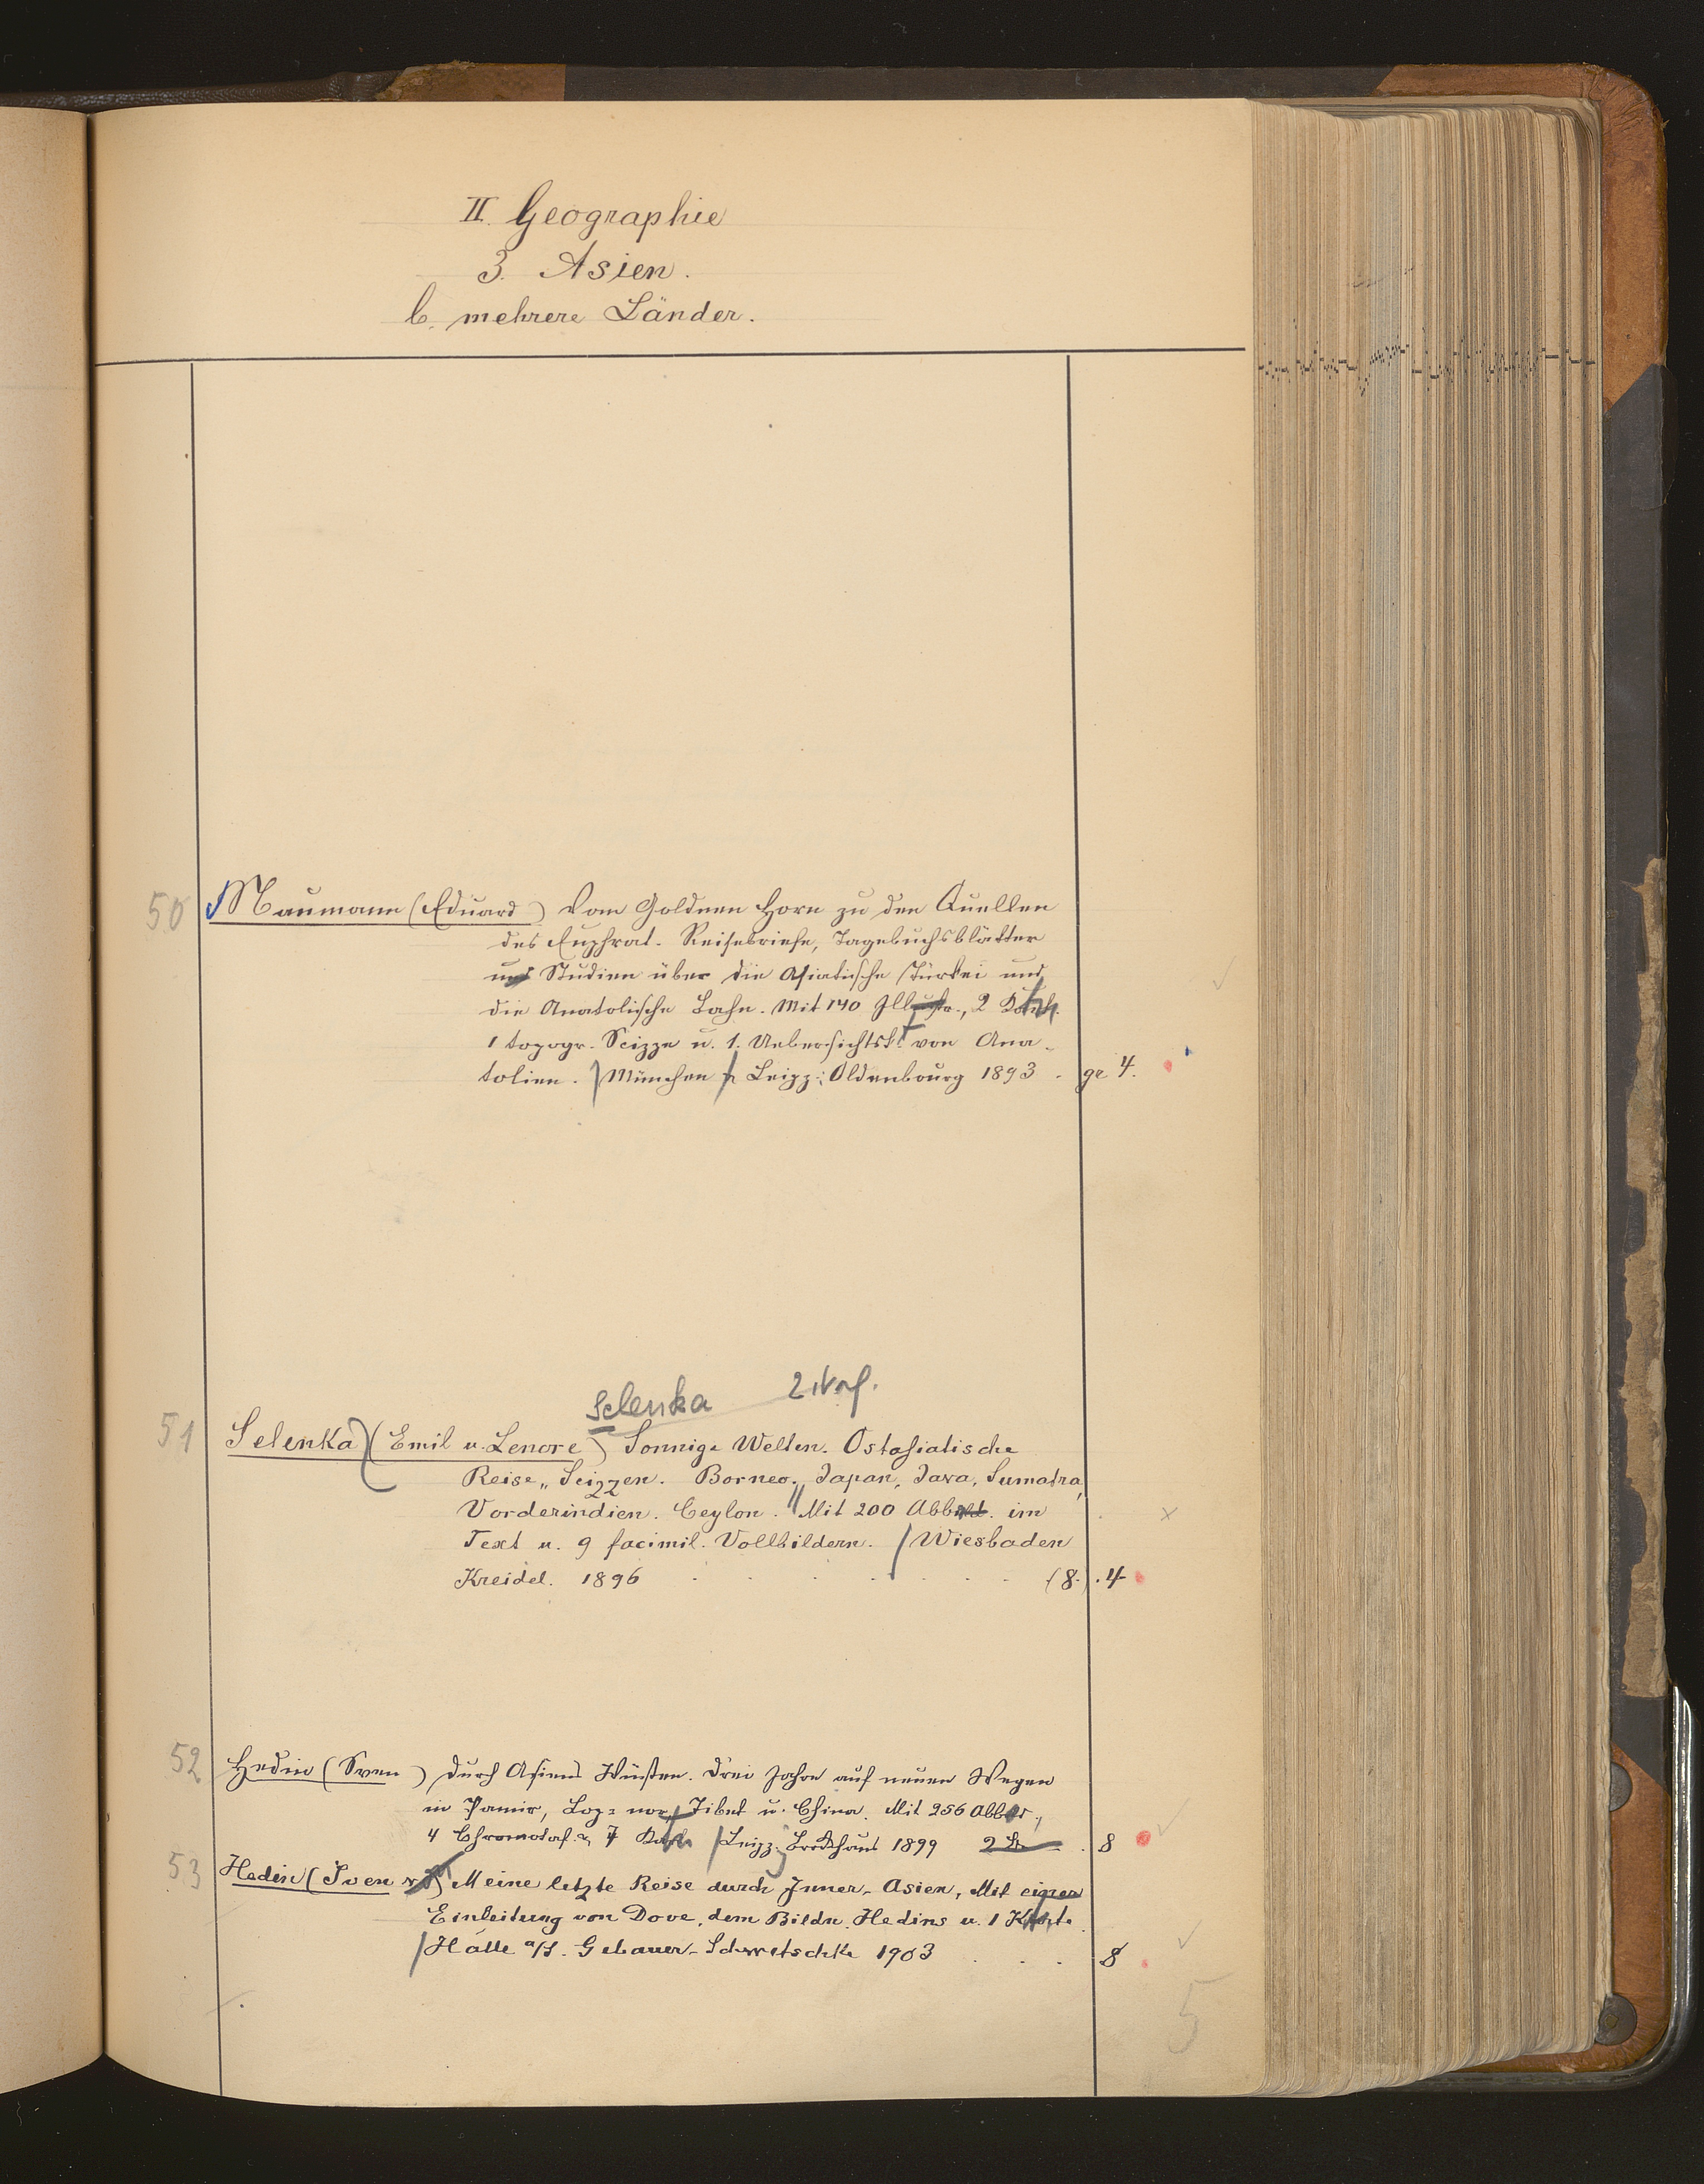 II. Geographie
3. Asien.
b. mehrere Länder.
50 Naumann (Eduard) Vom Goldnen Horn zu den Quellen
des Euphrat. Reisebriefe, Tagebuchsblätter
und Studien über die Asiatische Türkei und
die Anatolische Bahn. Mit 140 Illustr., 2
1 topogr. Scizze u. 1. Uebersichtsk. von Ana-
tolien. München u Leipz: Oldenbourg 1893 . gr 4.
Selenka
51 Selenka (Emil u. Lenore) Sonnige Welten. Ostasiatische
Reise-Scizzen. Borneo, Japan, Java, Sumatra,
Vorderindien. Ceylon. Mit 200 Abbild. im
Text u. 9 facimil. Vollbildern. Wiesbaden
Kreidel. 1896 . . . . . . . (8.) . 4
52 Hedin (Sven) Durch Asiens Wüsten. Drei Jahre auf neuen Wegen
in Pamir, Lop=nor, Tibet u. China. Mit 256 Abb
4 Chromotaf. u 7 Leipz. Brockhaus 1899 . 8
53 Hedin (Sven v.) Meine letzte Reise durch Inner-Asien, Mit einer
Einleitung von Dove, dem Bildn. Hedins u. 1 Karte.
Halle a/S. Gebauer-Schwetschke 1903 . . . 8
5